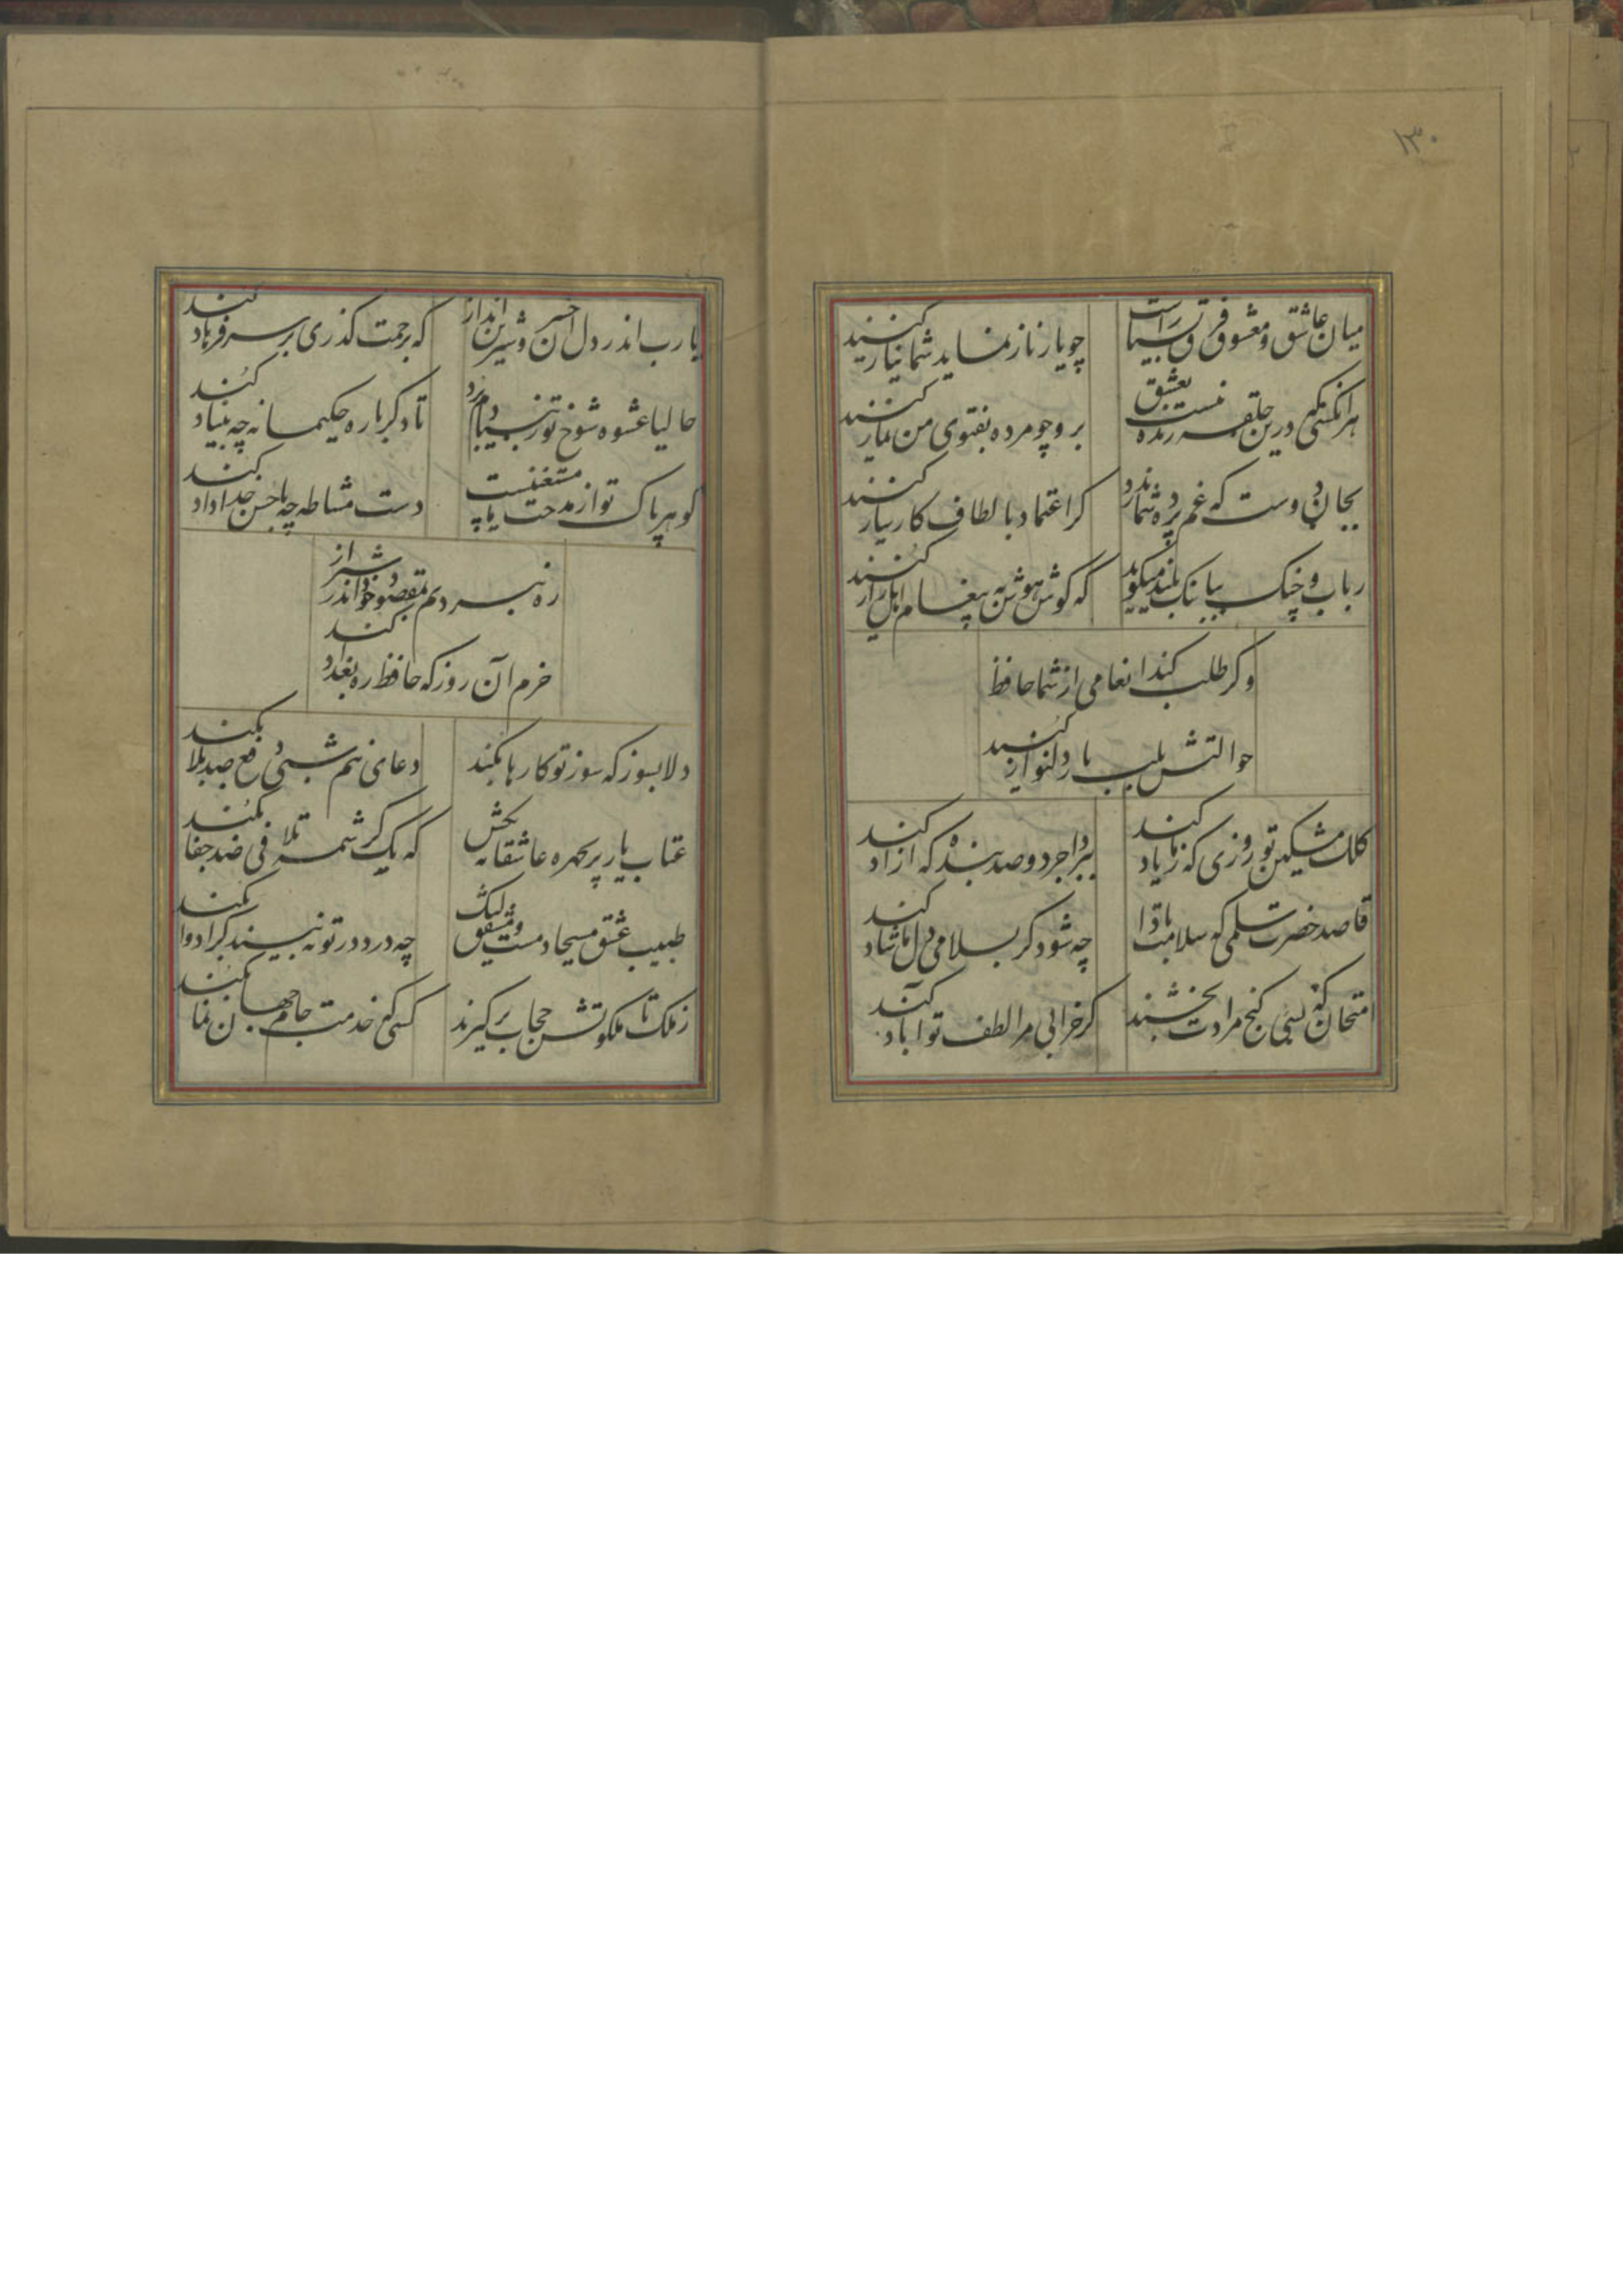 ۱۳۰
میان عاشق و معشوق فرق بسیاراست
چو یار ناز نماید شما نیاز کنید
هر انکسی که درین حلقه نیست زنده بعشق
برو چو مرده بفتوی من نماز کنید
بجان دوست که غم پرده شما ندرد
کر اعتماد بالطاف کارساز کنید
رباب و چنک ببانک بلند میکوید
که کوش هوش به پیغام اهل راز کنید
وکر طلب کند انعامی از شما حافظ
حوالتش بلب یار دلنواز کنید
کلک مشکین تو روزی که ز ما یاد کند
ببرد اجر دو صد بنده که ازاد کند
قاصد حضرت سلمی که سلامت بادا
چه شود کر بسلامی دل ما شاد کند
امتحان کن که بسی کنج مرادت بخشند
کر خرابی مرا لطف تو اباد کند
یا رب اندر دل آن خسرو شیرین انداز
که برحمت کذری بر سر فرهاد کند
حالیا عشوه شوخ تو ز بنیادم برد
تا دکر باره حکیمانه چه بنیاد کند
کوهر پاک تو از مدحت ما مستغنیست
دست مشاطه چه با حسن خداداد کند
ره نبردیم بمقصود خود اندر شیراز
خرم آن روز که حافظ ره بغداد کند
دلا بسوز که سوز تو کارها بکند
دعای نیم شبی دفع صد بلا بکند
عتاب یار پریچهره عاشقانه بکش
که یک کرشمه تلافی صد جفا بکند
طبیب عشق مسیحا دمست و مشفق لیک
چو درد در تو نه بیند کرا دوا بکند
ز ملک تا ملکوتش حجاب بر کیرند
کسی که خدمت جام جهان نما بکند